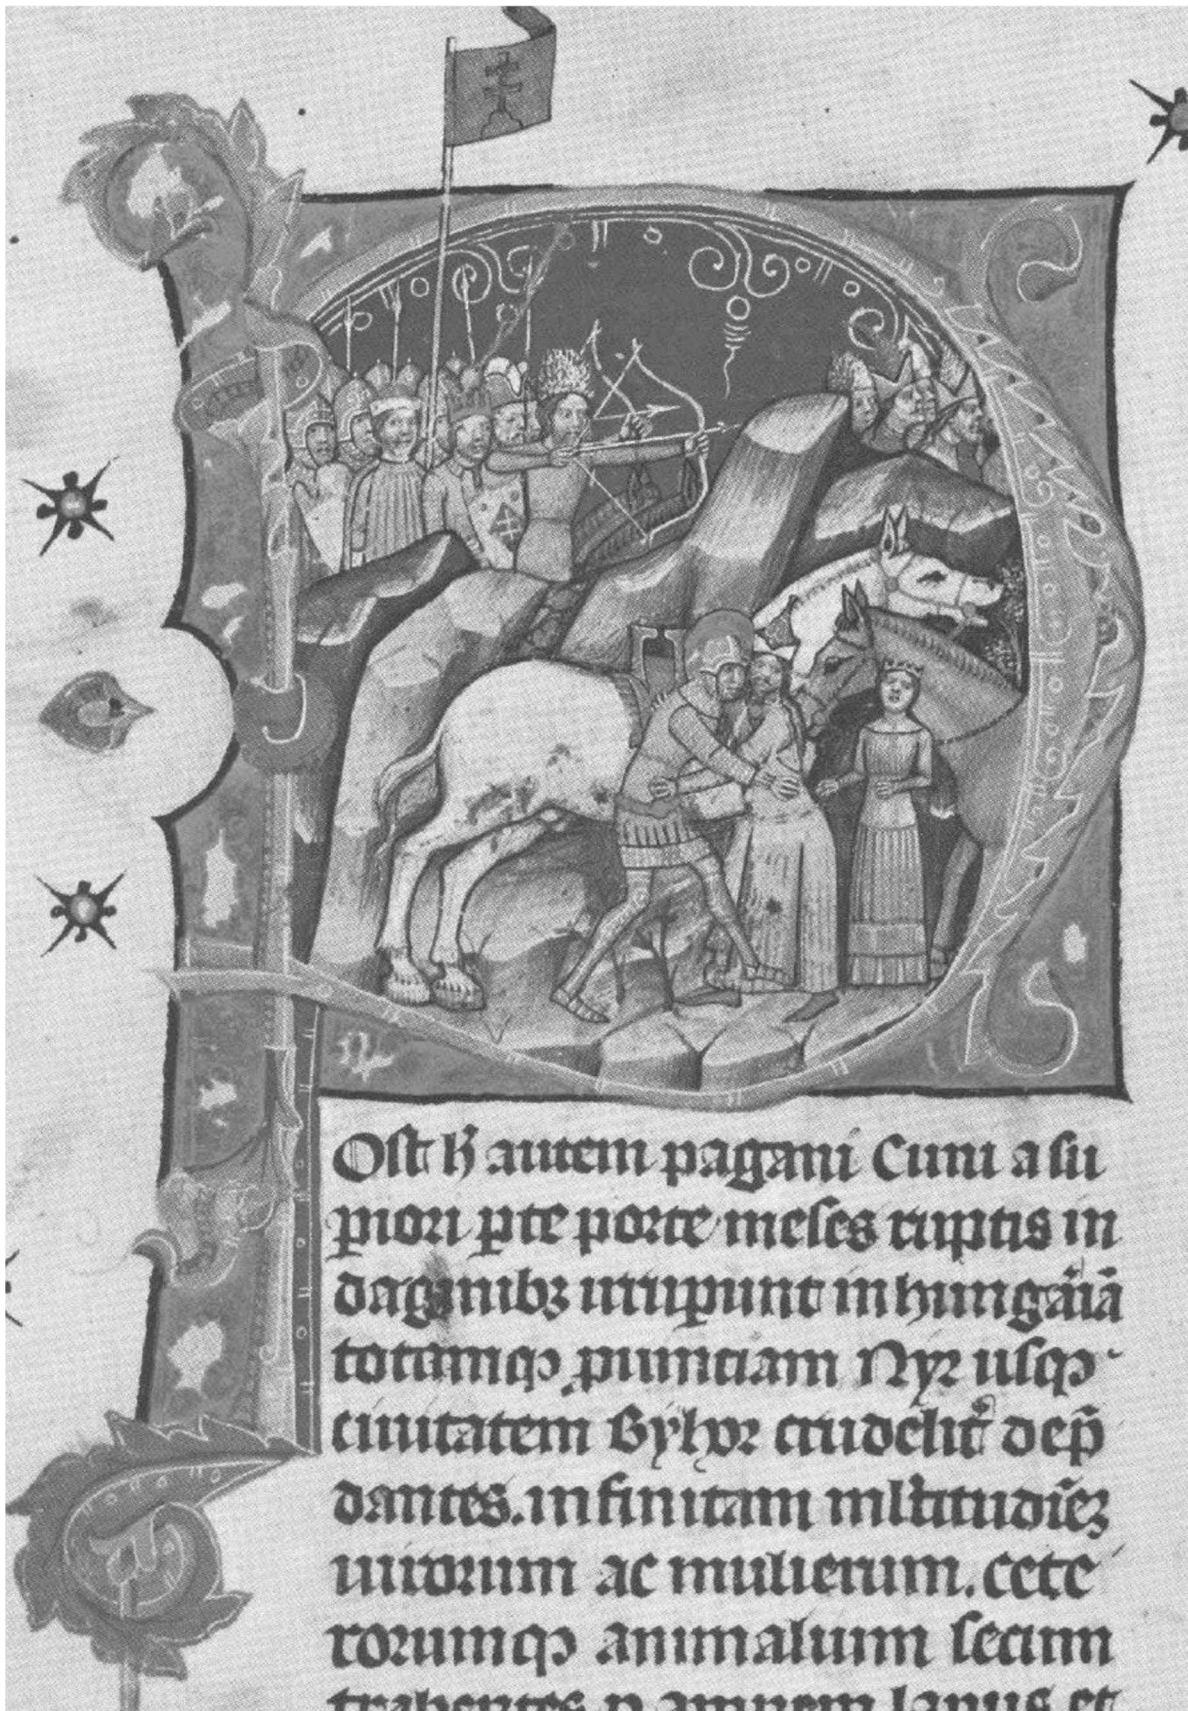 Ost h̄ autem pagani Cuni a su
piori pte porte meses ruptis in
daginibꝫ irrupunt in hungāiā
totamqꝫ puinciam Nyr usqꝫ
ciuitatem Byhor crudelit̄ dep̄
dantes. infinitam ml̄titudīeꝫ
uirorum ac mulierum. cete
rorumqꝫ animalium secum
trahentes p amnem lapus et